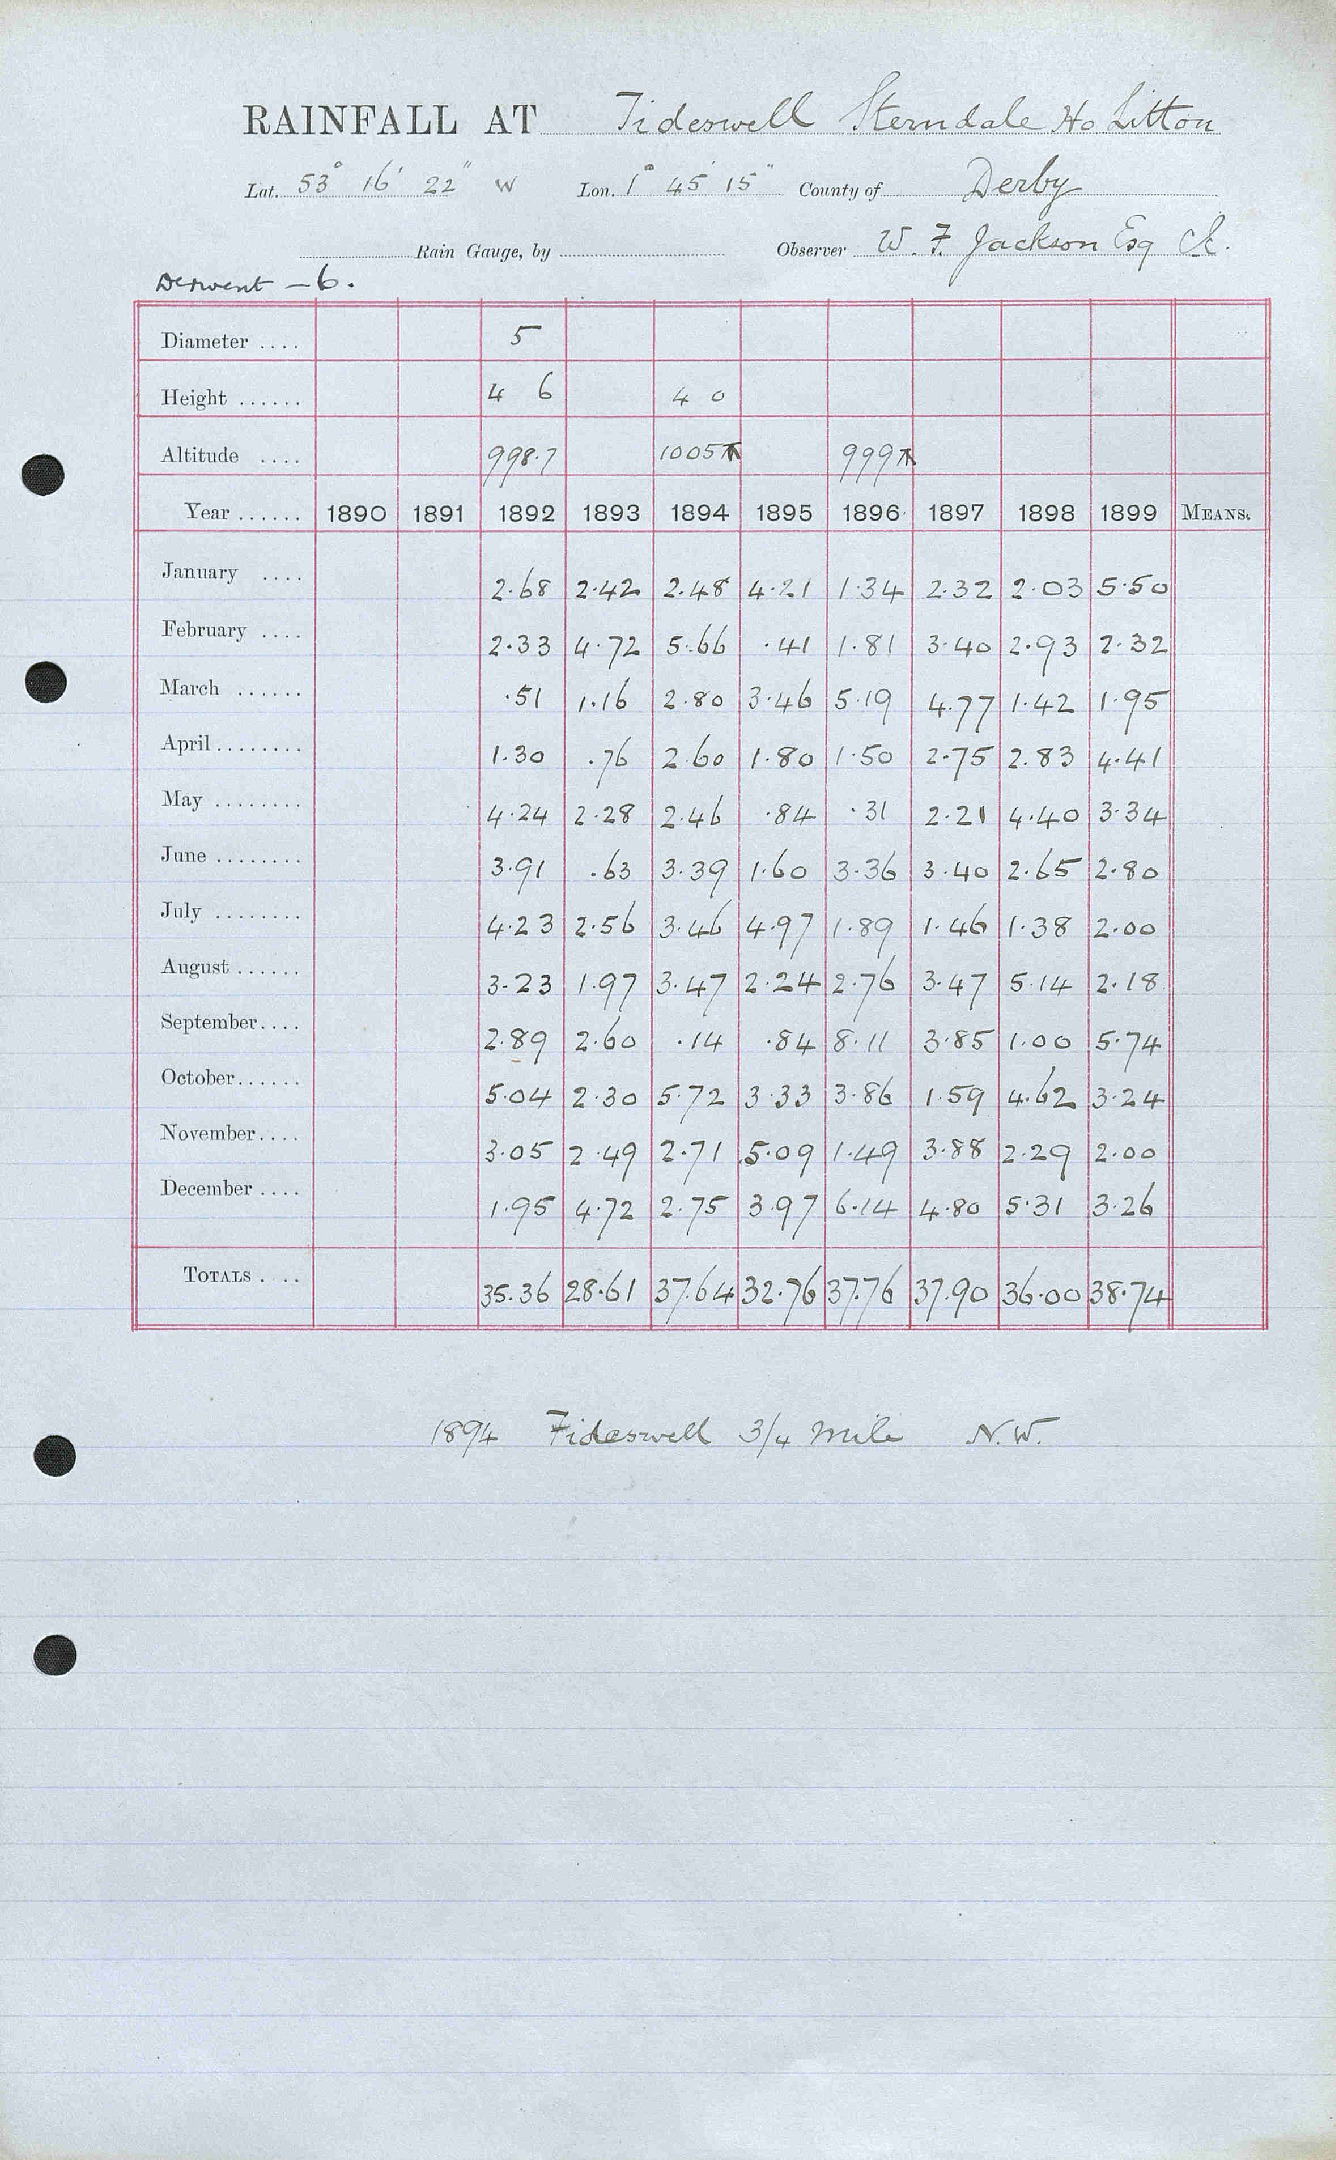 RAINFALL AT Tideswell Sterndale Ho Litton
Lat. 53° 16' 22" W Lon. 1° 45' 15" County of Derby
Rain Gauge, by Observer W. F. Jackson Esq
Derwent - 6.
Diameter .... 5
Height ...... 4 6 4 0
Altitude .... 998.7 1005 999
Year ...... 1890 1891 1892 1893 1894 1895 1896 1897 1898 1899 MEANS.
January .... 2.68 2.42 2.48 4.21 1.34 2.32 2.03 5.50
February .... 2.33 4.72 5.66 .41 1.81 3.40 2.93 2.32
March ...... .51 1.16 2.80 3.46 5.19 4.77 1.42 1.95
April ........ 1.30 .76 2.60 1.80 1.50 2.75 2.83 4.41
May ........ 4.24 2.28 2.46 .84 .31 2.21 4.40 3.34
June ........ 3.91 .63 3.39 1.60 3.36 3.40 2.65 2.80
July ........ 4.23 2.56 3.46 4.97 1.89 1.46 1.38 2.00
August ...... 3.23 1.97 3.47 2.24 2.76 3.47 5.14 2.18
September .... 2.89 2.60 .14 .84 8.11 3.85 1.00 5.74
October ...... 5.04 2.30 5.72 3.33 3.86 1.59 4.62 3.24
November .... 3.05 2.49 2.71 5.09 1.49 3.88 2.29 2.00
December .... 1.95 4.72 2.75 3.97 6.14 4.80 5.31 3.26
TOTALS .... 35.36 28.61 37.64 32.76 37.76 37.90 36.00 38.74
1894 Tideswell 3/4 mile N.W.